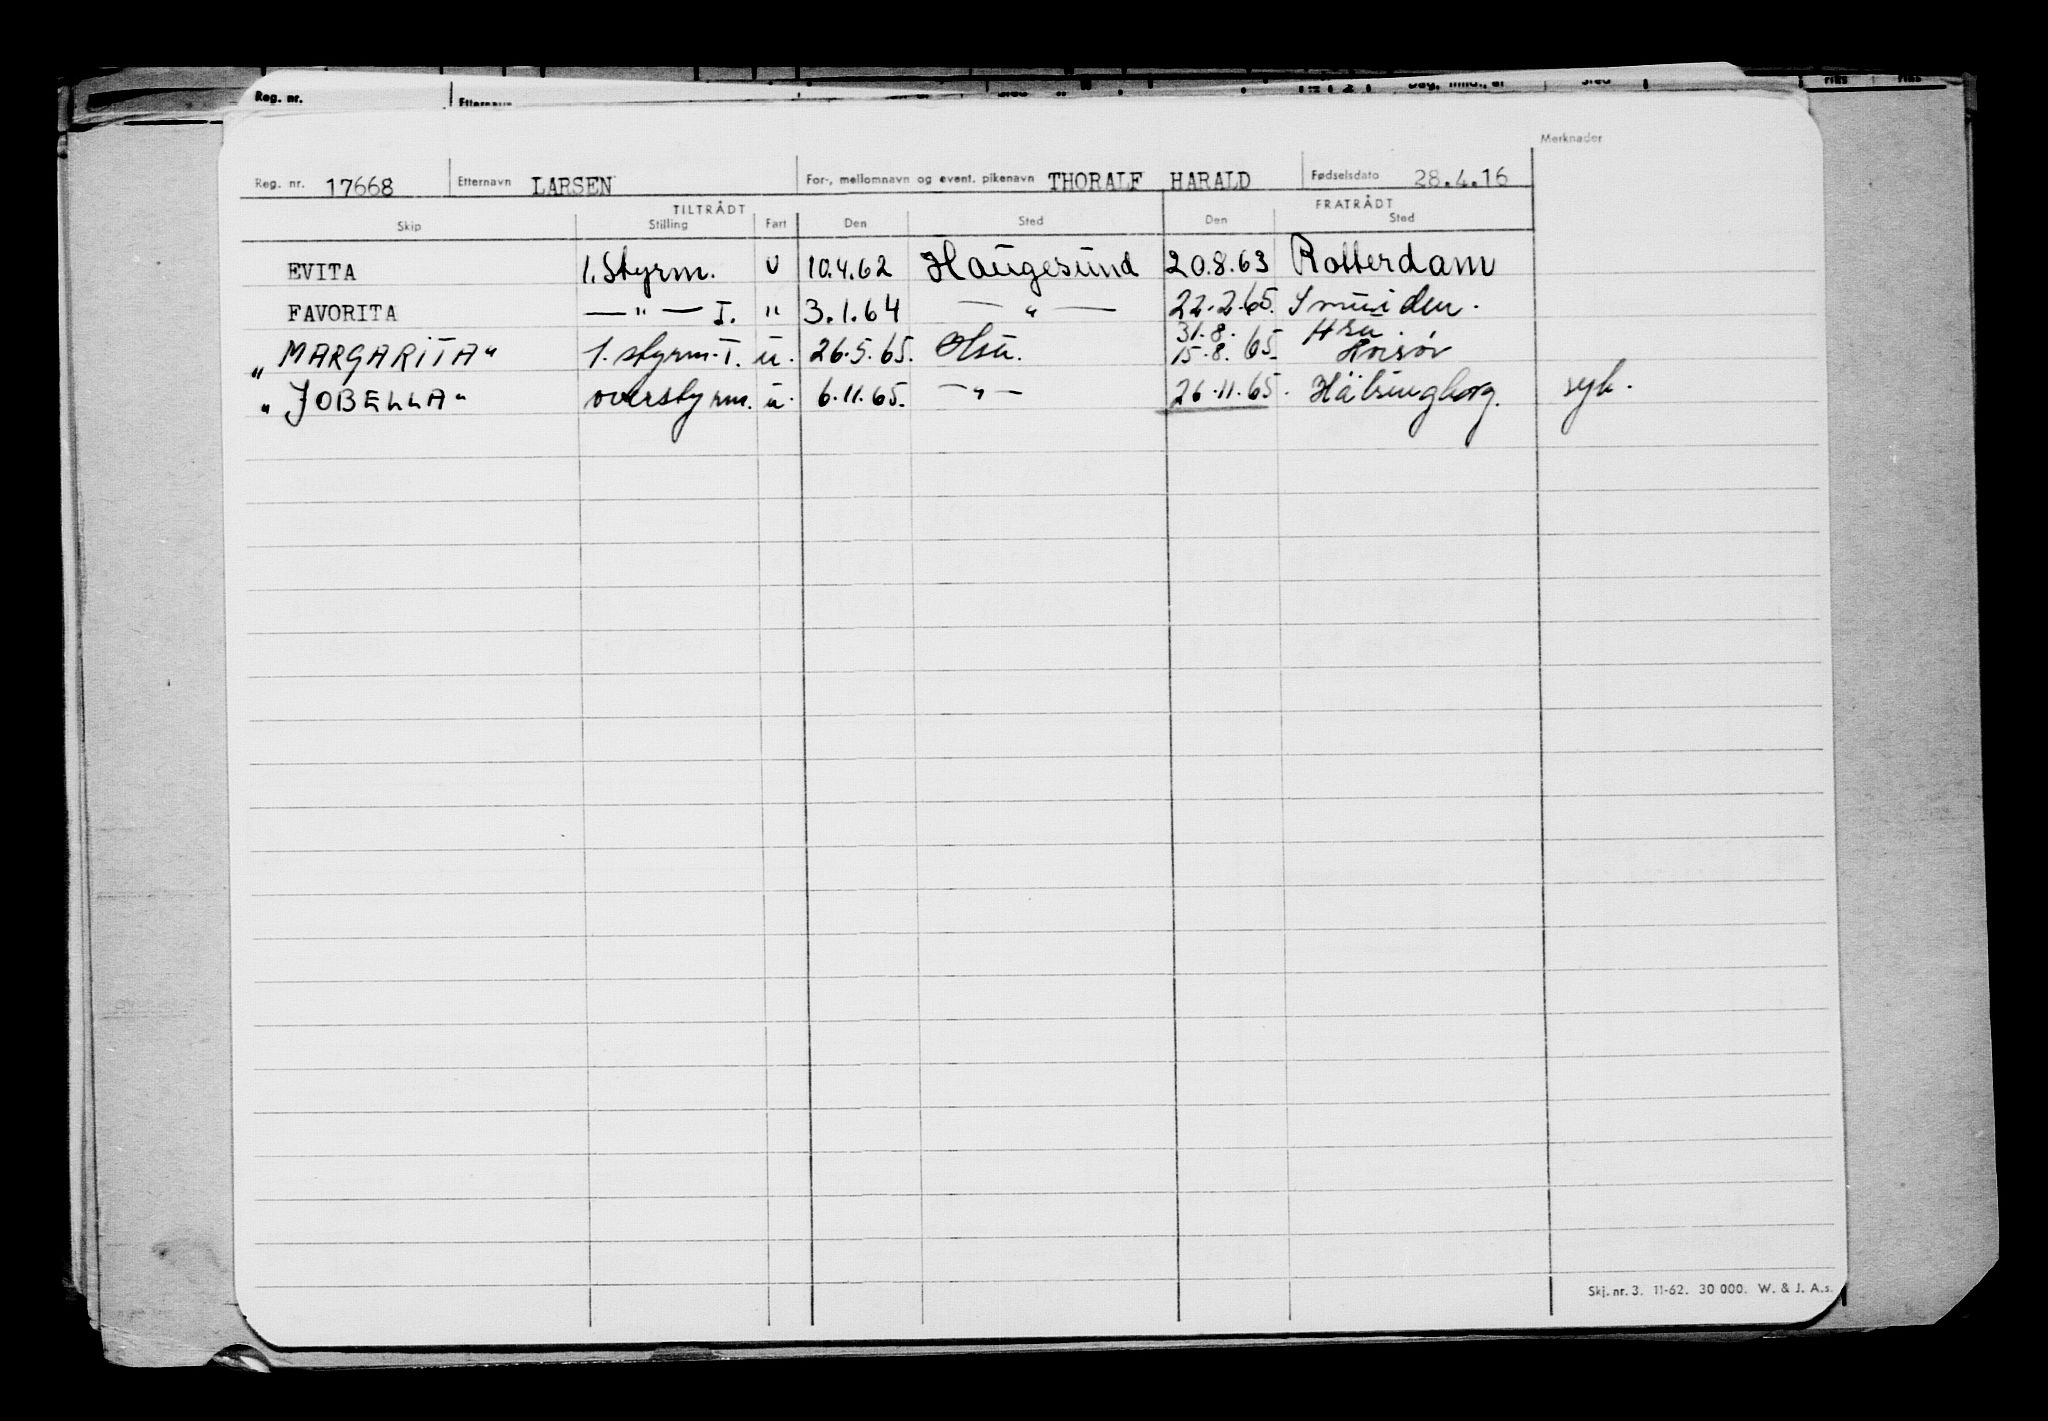 Reg. nr.
Reg. nr. 17668 Etternavn LARSEN For-, mellomnavn og event. pikenavn THORALF HARALD Fødselsdato 28.4.16 Merknader
TILTRÅDT FRATRÅDT
Skip Stilling Fart Den Sted Den Sted
EVITA 1. Styrm. U 10.4.62 Haugesund 20.8.63 Rotterdam
FAVORITA — " — I. " 3.1.64 — " — 22.2.65. Imuiden.
31.8. Hsu.
„MARGARITA" 1. styrm. I. u. 26.5.65. 15.8.65. Korsør
„JOBELLA" overstyrm. u. 6.11.65. — " — 26.11.65. Hälsingborg. syk.
Skj. nr. 3. 11-62. 30 000. W. & J. A.s.